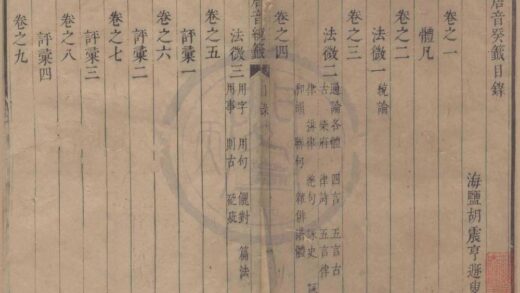 唐音癸籤目錄
海鹽胡震亨遯叟
卷之一
體凡
卷之二
法微一 統論
卷之三
法微二 通論各體 四言 五言古
古樂府 律詩 五言律
律 排律 絕句 詠史
和韻 聯句 雜俳諧體
卷之四
唐音癸籤 目錄
法微三 用字 用句 儷對 篇法
用事 剽古 疵
卷之五
評彙一
卷之六
評彙二
卷之七
評彙三
卷之八
評彙四
卷之九